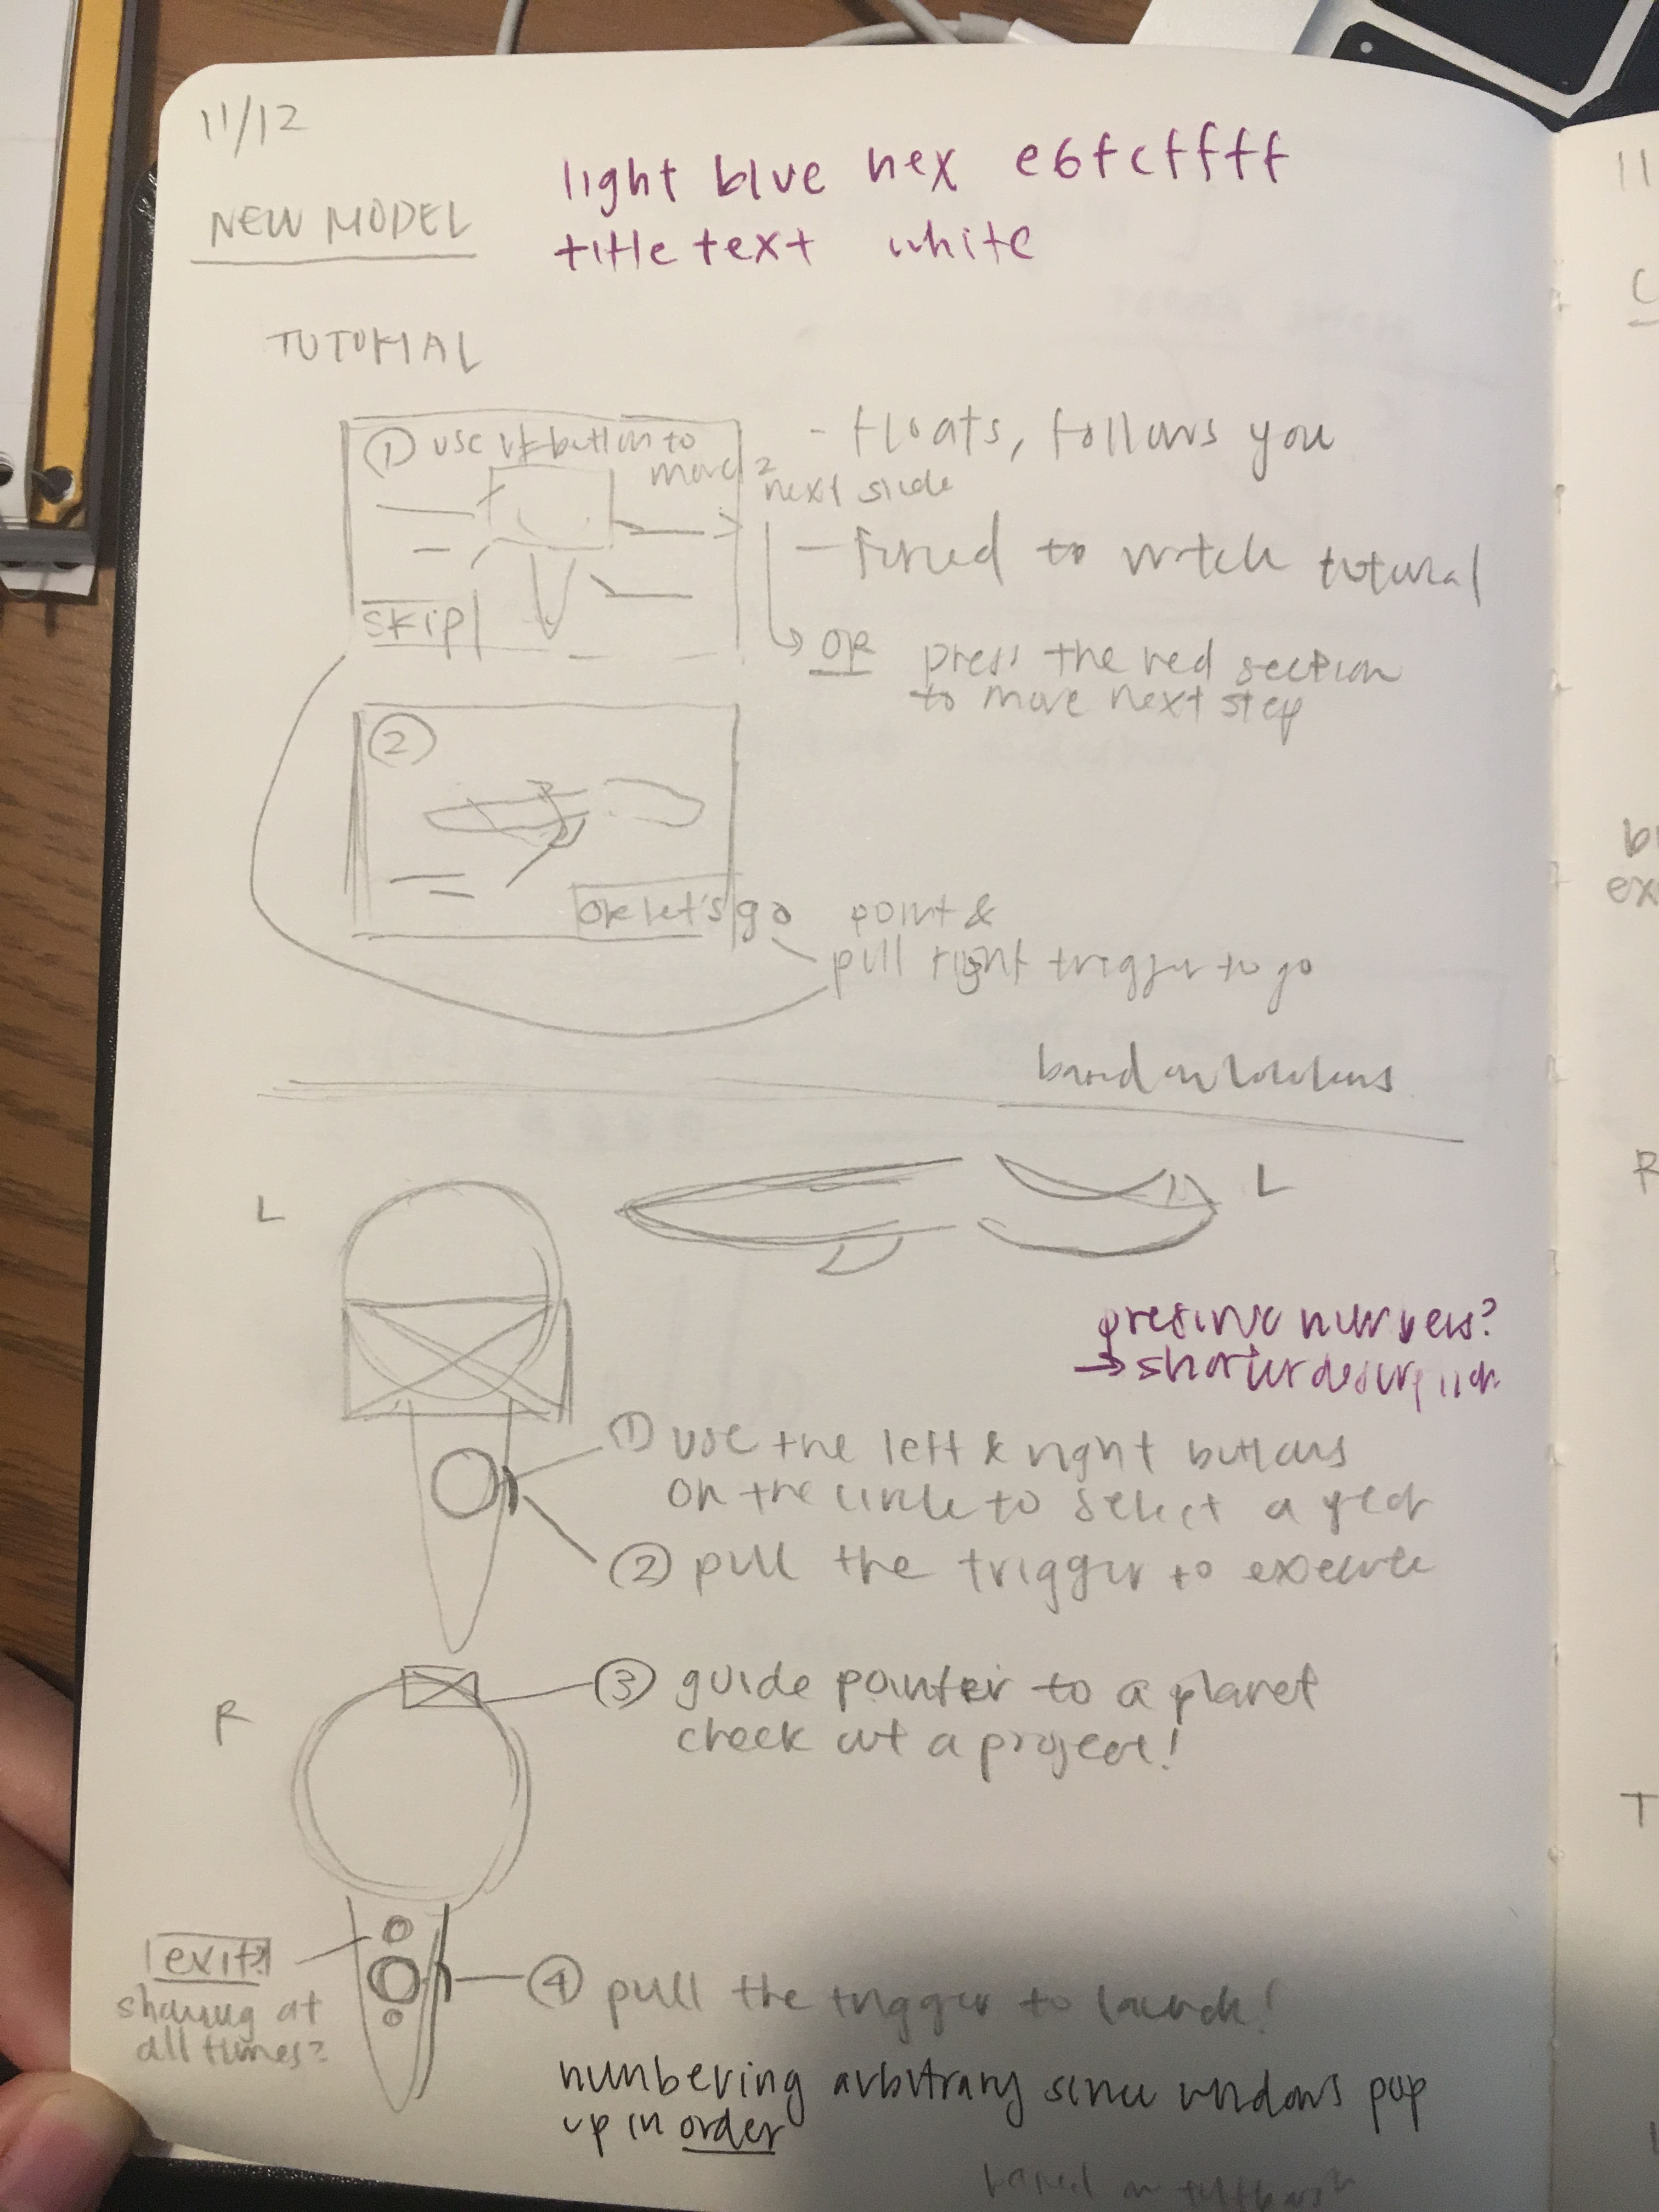 11/12
NEW MODEL
light blue hex e6fcffff
title text white
TUTORIAL
① use button to
move 2
next slide
SKIP
- floats, follows you
- forced to watch tutorial
OR press the red section
to move next step
②
ok let's go
point &
pull right trigger to go
based on hololens
L
L
preserve numbers?
→ shorter description
① use the left & right buttons
on the circle to select a year
② pull the trigger to execute
R
③ guide pointer to a planet
check out a project!
exit?
showing at
all times?
④ pull the trigger to launch!
numbering arbitrary since windows pop
up in order
based on
11
C
bl
ex
R
T